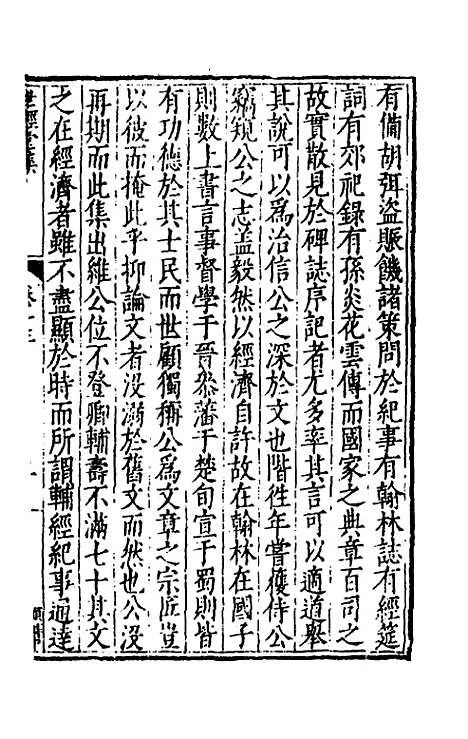 有備胡弭盜賑饑諸策問於紀事有翰林誌有經筵
詞有郊祀錄有孫炎花雲傳而國家之典章百司之
故實散見於碑誌序記者尤多率其言可以適道舉
其說可以爲治信公之深於文也階徃年嘗獲侍公
竊窺公之志盖毅然以經濟自許故在翰林在國子
則數上書言事督學于晉叅藩于楚旬宣于蜀則皆
有功德於其士民而世顧獨稱公爲文章之宗匠豈
以彼而掩此乎抑論文者没溺於舊文而然也公没
再期而此集出維公位不登卿輔壽不滿七十其文
之在經濟者雖不盡顯於時而所謂輔經紀事通達
世經堂集
卷十三